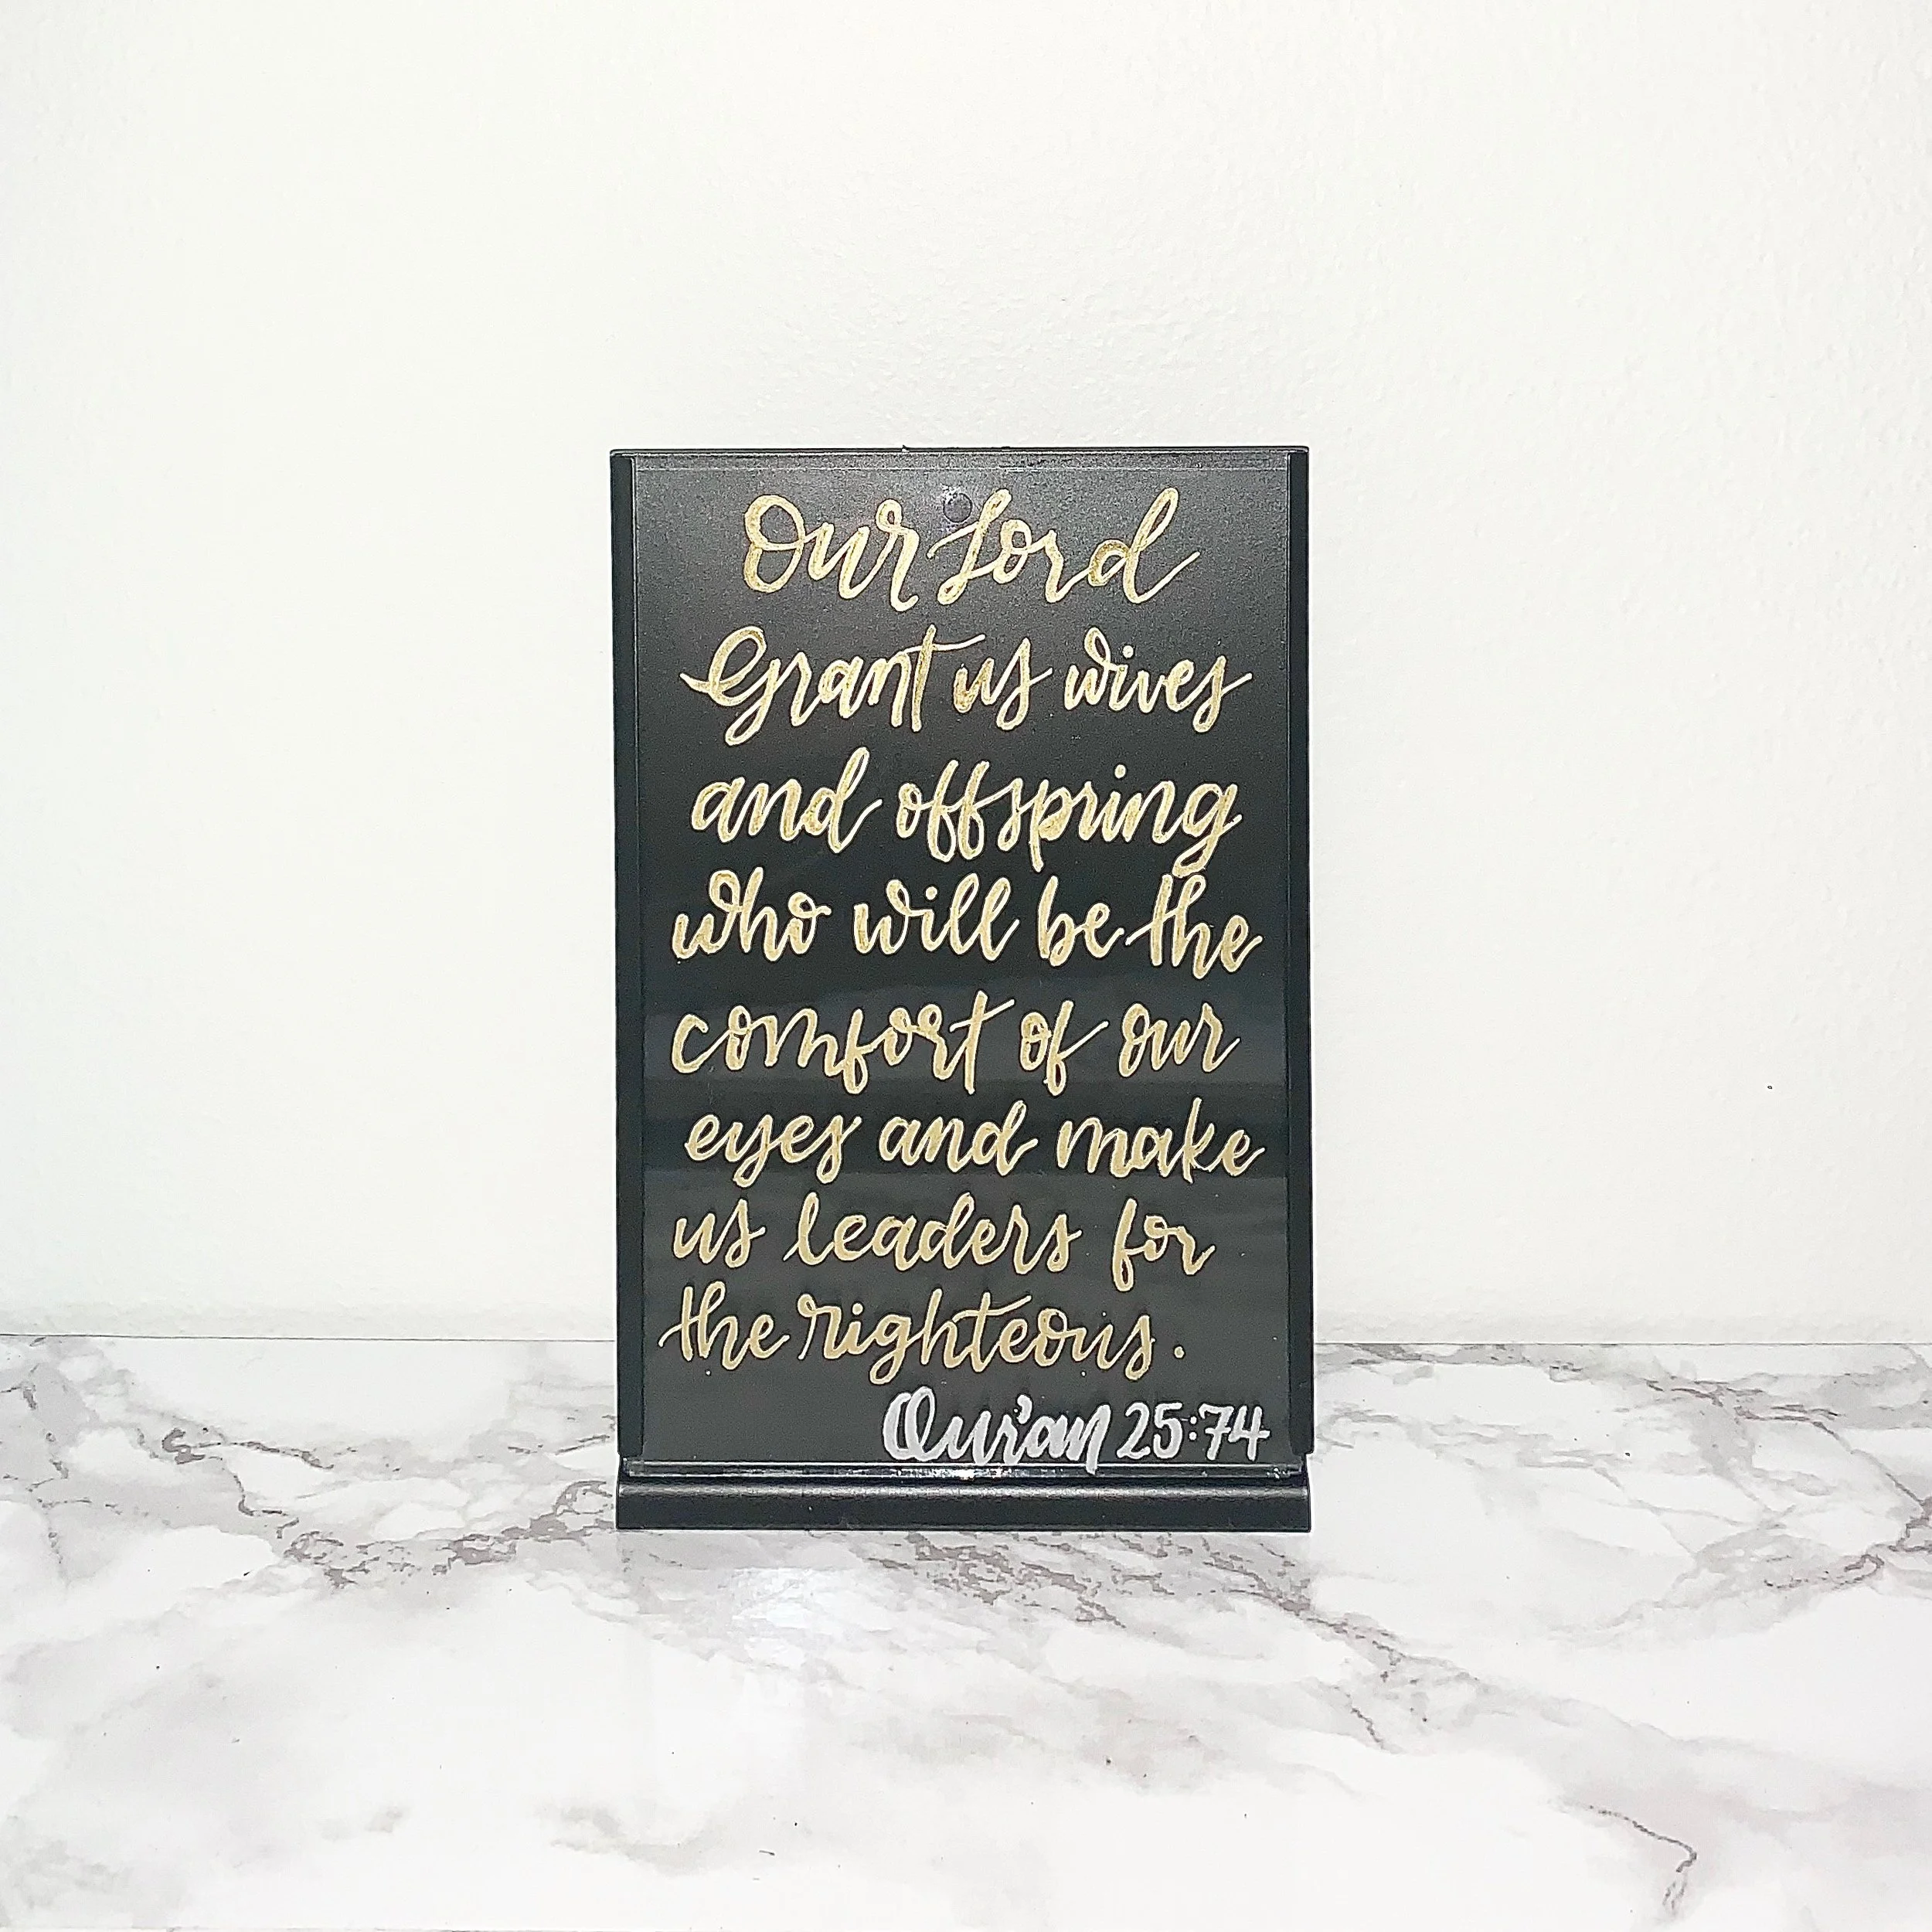 Our Lord
Grant us wives
and offspring
who will be the
comfort of our
eyes and make
us leaders for
the righteous.
Qur'an 25:74